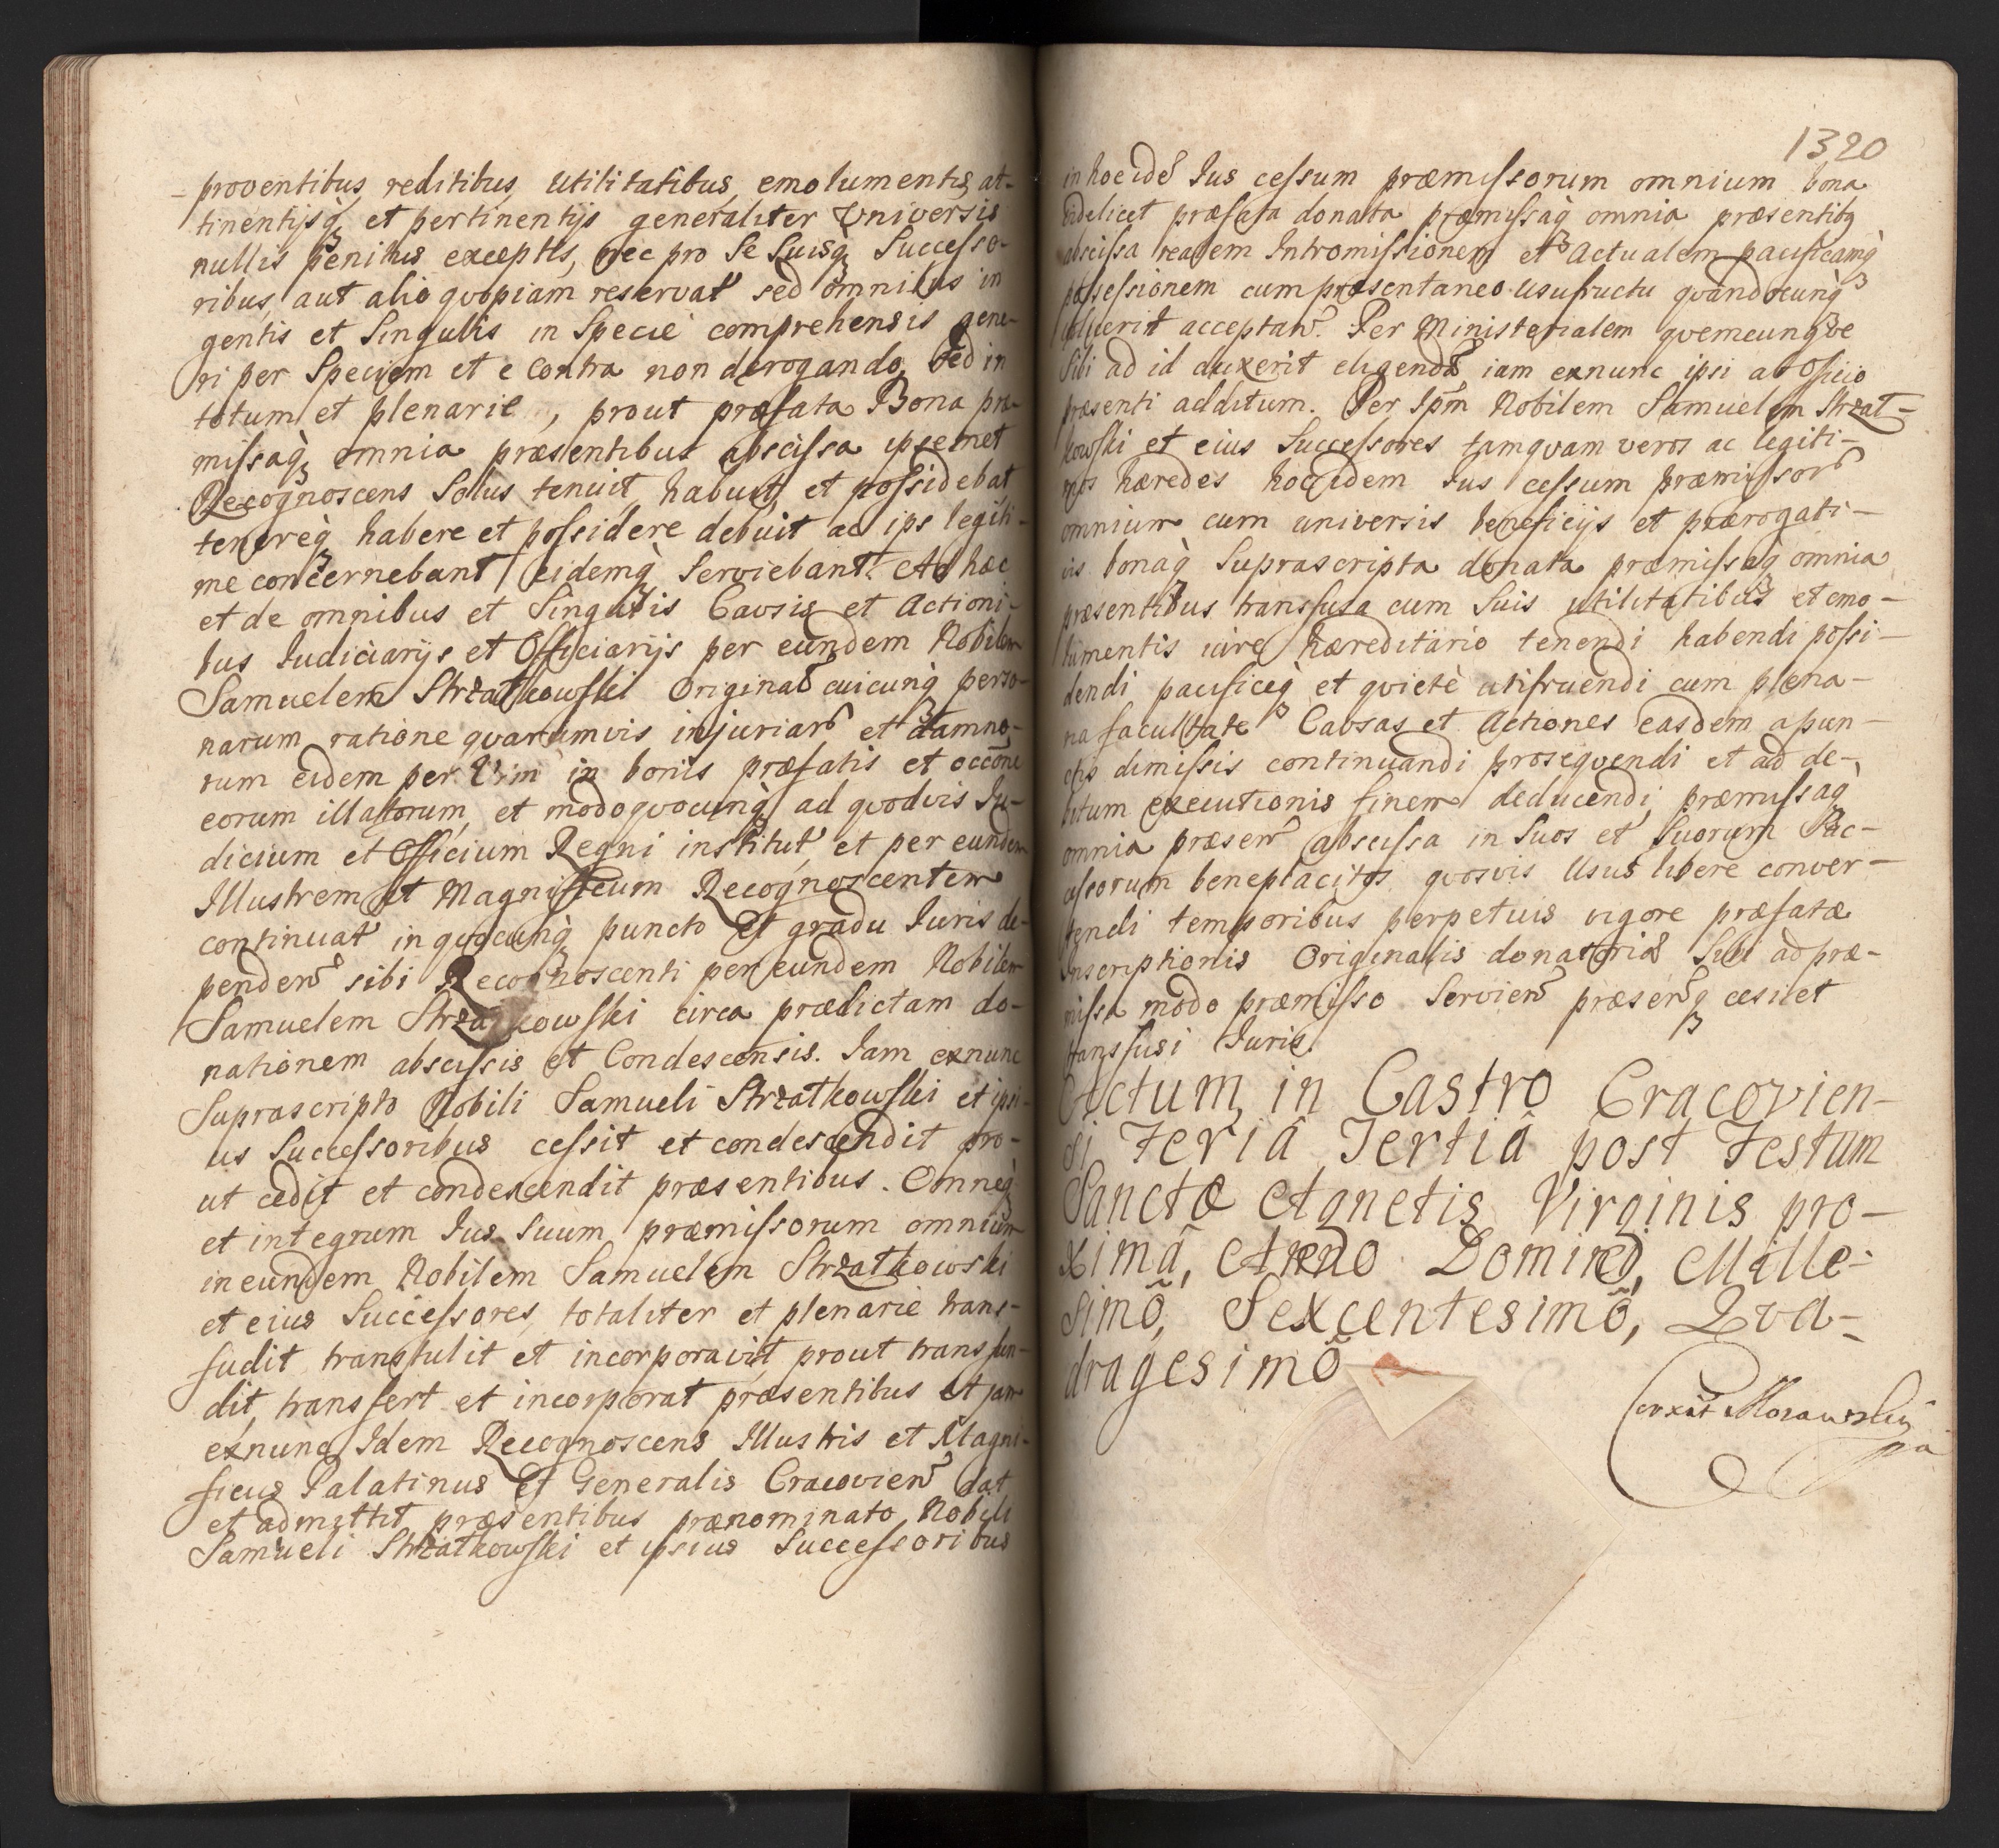 proventibus, reditibus, utilitatibus, emolumentis, at-
tinentijsq3 et pertinentijs generaliter Universis
nullis penitus exceptis, nec pro Se Suisq3 Successo-
ribus, aut alio qvopiam reservat sed omnibus in
gentis et Singulis in Specie comprehensis gene-
ri per Speciem et e contra non derogando, Sed in
totum et plenarie, prout præfata Bona præ-
missaq3 omnia præsentibus abscissa ipsemet
Recognoscens Solus tenuit, habuit, et possidebat
tenereq3 habere et possidere debuit ac ips legiti-
me concernebant eidemq3 Serviebant. Ad hæc
et de omnibus et Singulis Cavsis et Actioni-
bus Iudiciarijs et Officiarijs per eundem Nobilem
Samuelem Strzałkowski Original cuicunq3 perso-
narum ratione qvarumvis injuriar et damno-
rum eidem per Vim in bonis præfatis et occõne
eorum illatorum, et modoqvocunq3 ad qvodvis Iu-
dicium et Officium Regni institut, et per eundem
Illustrem et Magnificum Recognoscentem
continuat in qvocunq3 puncto et gradu Iuris de-
penden sibi Recognoscenti per eundem Nobilem
Samuelem Strzałkowski circa prædictam do-
nationem abscissis et Condescensis. Iam exnunc
Suprascripto Nobili Samueli Strzałkowski et ipsi-
us Successoribus cessit et condescendit pro-
ut cedit et condescendit præsentibus. Omneq3
et integrum Ius Suum præmissorum omnium
in eundem Nobilem Samuelem Strzałkowski
et eius Successores, totaliter et plenarie trans-
fudit, transtulit et incorporavit, prout transfun-
dit, transfert et incorporat præsentibus et jam
exnunc Idem Recognoscens Illustris et Magni-
ficus Palatinus et Generalis Cracovien dat
et admittit præsentibus prænominato Nobili
Samueli Strzałkowski et ipsius Successoribus
1320
in hoc idẽ Ius cessum præmissorum omnium bona
videlicet præfata donata præmissaq3 omnia præsentibq
abscissa realem Intromissionem et Actualem pacificamq3
possessionem cum præsentaneo usufructu qvandocunq3
voluerit acceptan. Per Ministerialem qvemcunqve
Sibi ad id duxerit eligend, iam exnunc ipsi ab Officio
præsenti additum. Per Ipm Nobilem Samuelem Strzał-
kowski et eius Successores tamqvam veros ac legiti-
mos hæredes hoc idem Ius cessum præmissor
omnium cum universis beneficijs et prærogati-
vis bonaq3 Suprascripta donata præmissaq3 omnia
præsentibus transfusa cum Suis utilitatibus et emo-
lumentis iure hæreditario tenendi habendi possi-
dendi pacificeq3 et qvietè utifruendi cum plena-
ria facultate Cavsas et Actiones easdem a pun-
ctis dimissis continuandi proseqvendi et ad de-
bitum executionis finem deducendi, præmissaq3
omnia præsen abscissa in Suos et Suorum Suc-
cessorum beneplacitos qvosvis Usus libere conver-
tendi temporibus perpetuis vigore præfatæ
Inscriptionis Originalis donatoriæ Sibi ad præ-
missa modo præmisso Servien præsenq3 cesi et
transfusi Iuris.
Actum in Castro Cracovien-
si Feriâ Tertiâ post Festum
Sanctæ Agnetis Virginis pro-
ximâ, Anno Domini, Mille-
simõ, Sexcentesimõ, Qva-
dragesimõ
Correxit Morawski